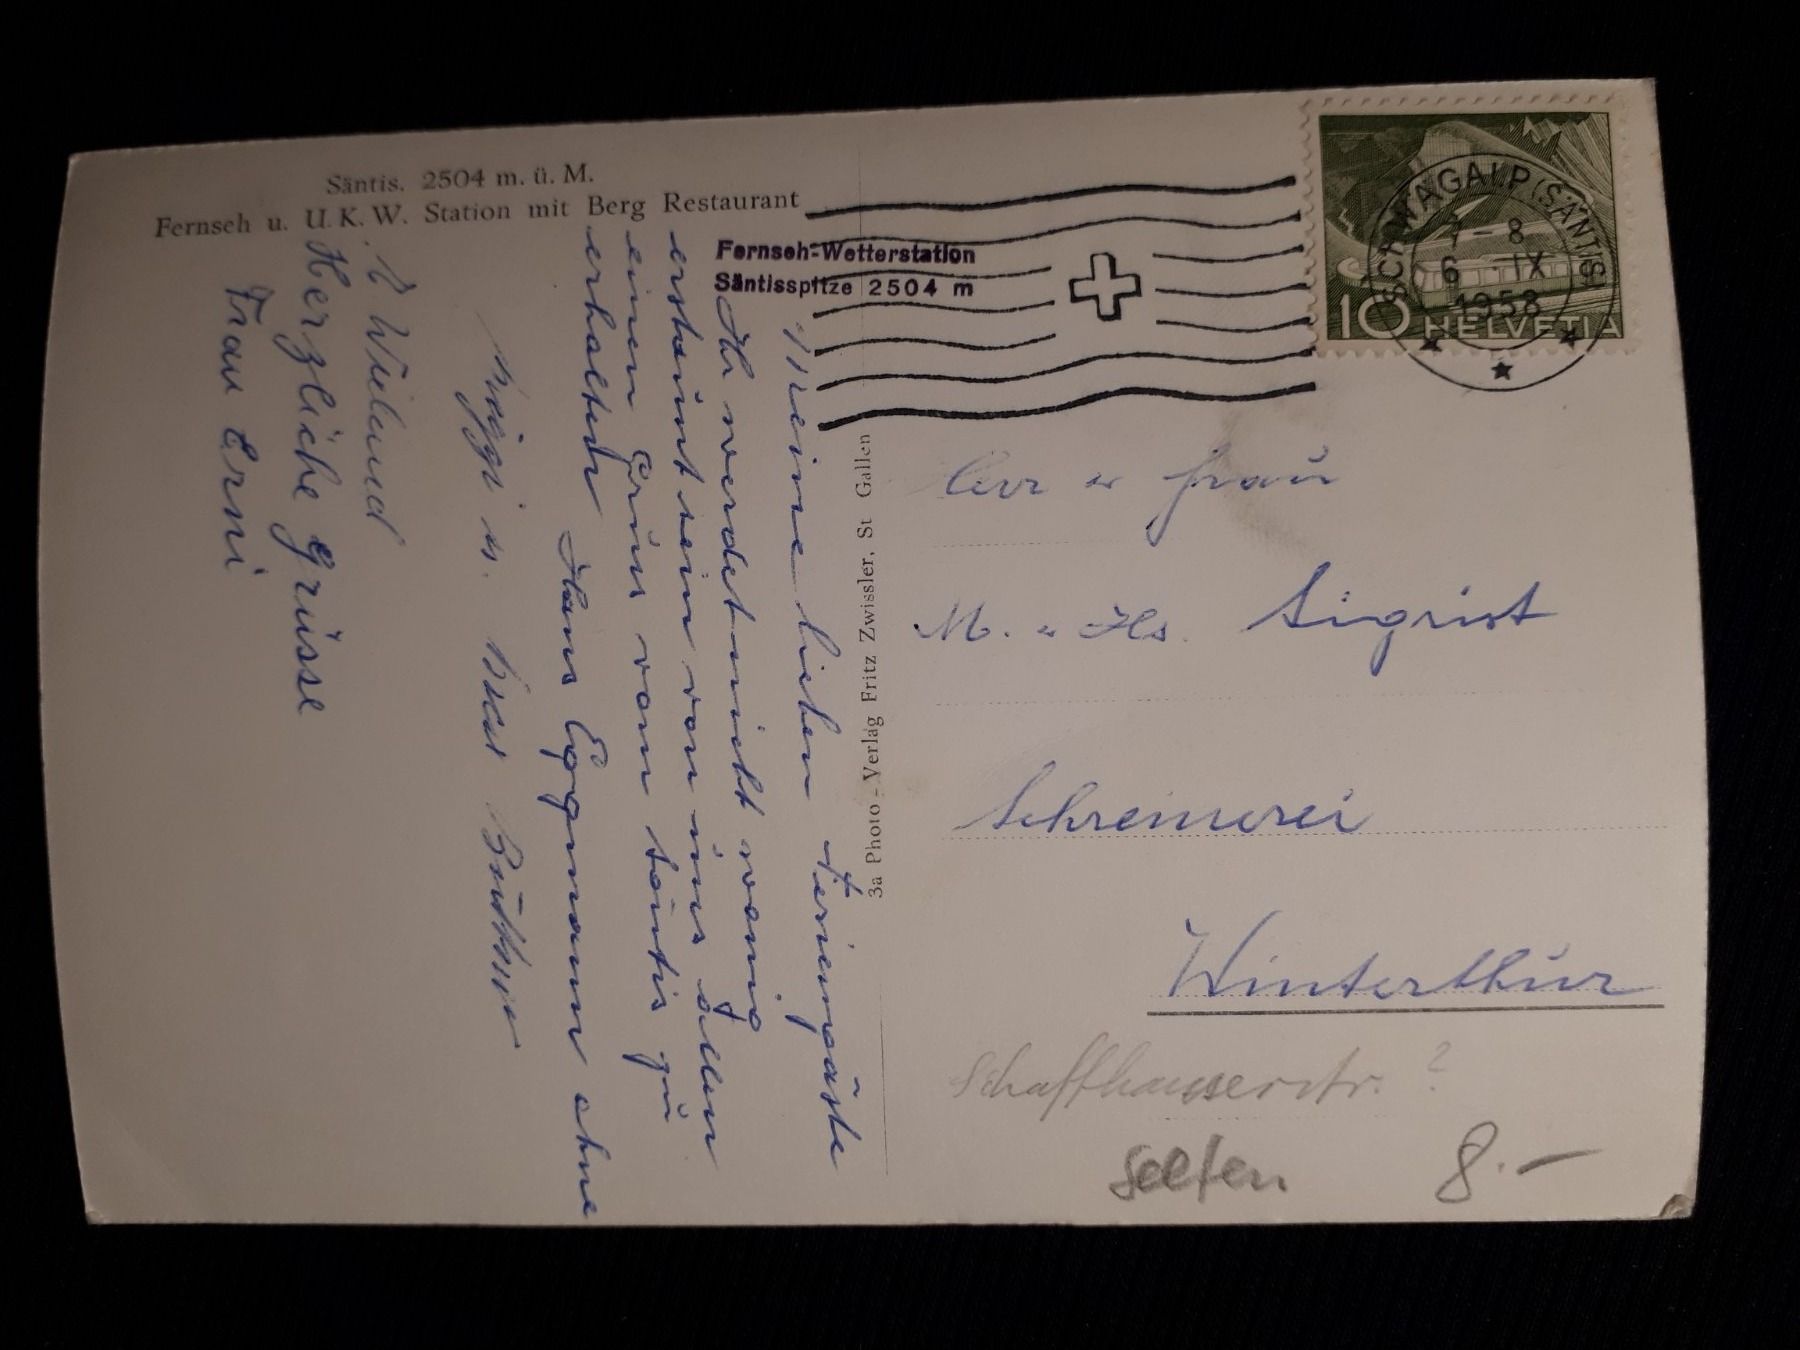 Säntis. 2504 m. ü. M.
Fernseh u. U.K.W. Station mit Berg Restaurant
Fernseh-Wetterstation
Säntisspitze 2504 m
SCHWAGALP (SÄNTIS)
7-8
6 IX
1958
10 HELVETIA
Meine lieben Feriengäste
Ihr werdet nicht wenig
erstaunt sein von uns allen
einen Gruss vom Säntis zu
erhalten
Hans Eggmann ohne
u.
Wieland
Herzliche Grüsse
Frau Erni
3a Photo-Verlag Fritz Zwissler, St Gallen
Herr u Frau
M. u Hs. Sigrist
Schreinerei
Winterthur
Schaffhauserstr. ?
selten. 8.-